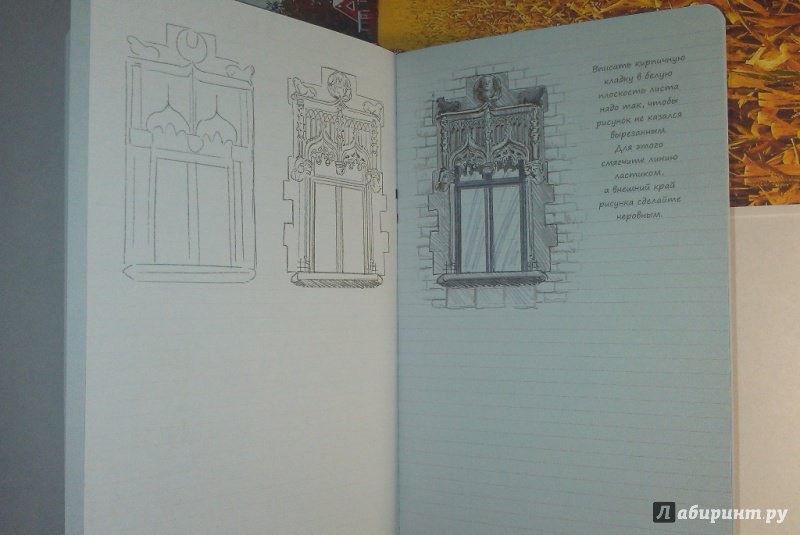 Вписать кирпичную
кладку в белую
плоскость листа
надо так, чтобы
рисунок не казался
вырезанным.
Для этого
смягчите линию
ластиком,
а внешний край
рисунка сделайте
неровным.
Лабиринт.ру